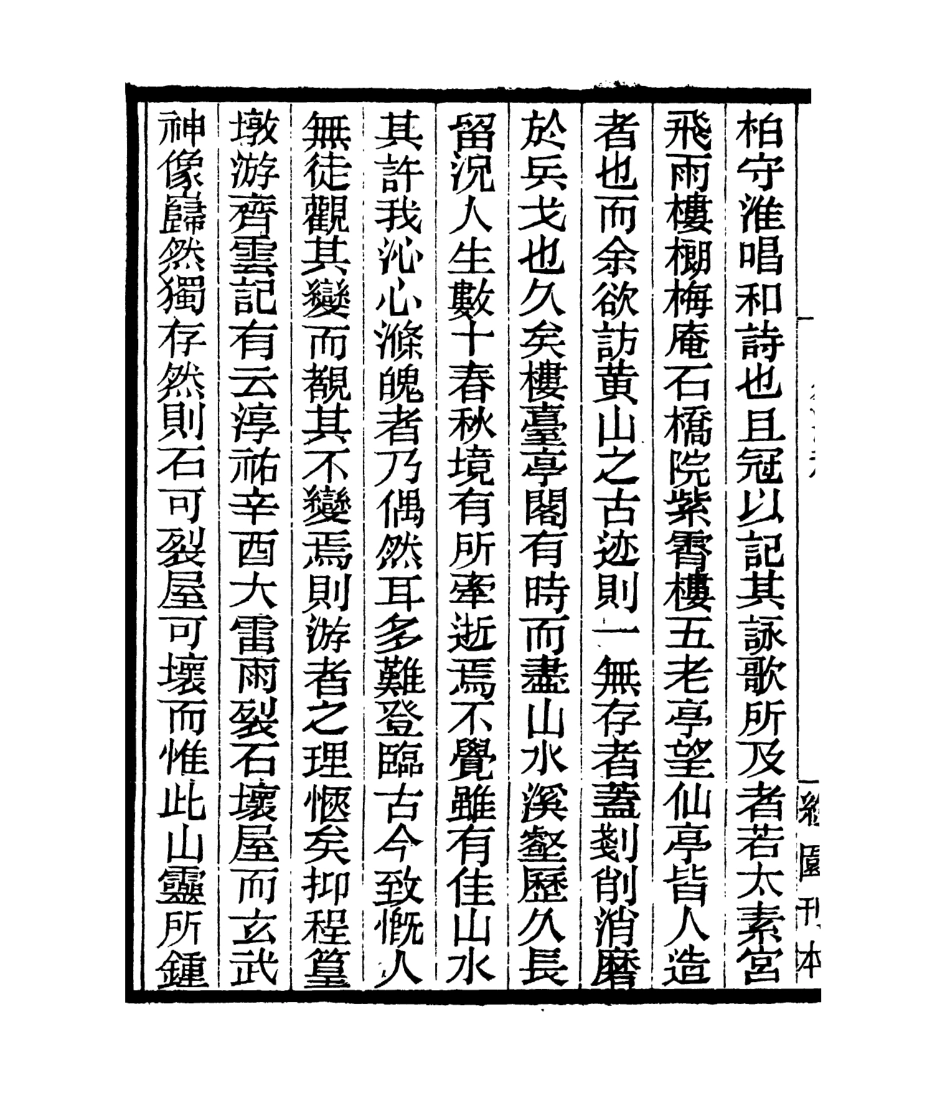 柏守淮唱和詩也且冠以記其詠歌所及者若太素宮
飛雨樓棚梅庵石橋院紫霄樓五老亭望仙亭皆人造
者也而余欲訪黃山之古迹則一無存者蓋剗削消磨
於兵戈也久矣樓臺亭閣有時而盡山水溪壑歷久長
留況人生數十春秋境有所牽逝焉不覺雖有佳山水
其許我沁心滌魄者乃偶然耳多難登臨古今致慨人
無徒觀其變而覩其不變焉則游者之理愜矣抑程篁
墩游齊雲記有云淳祐辛酉大雷雨裂石壞屋而玄武
神像巋然獨存然則石可裂屋可壞而惟此山靈所鍾
園刊本